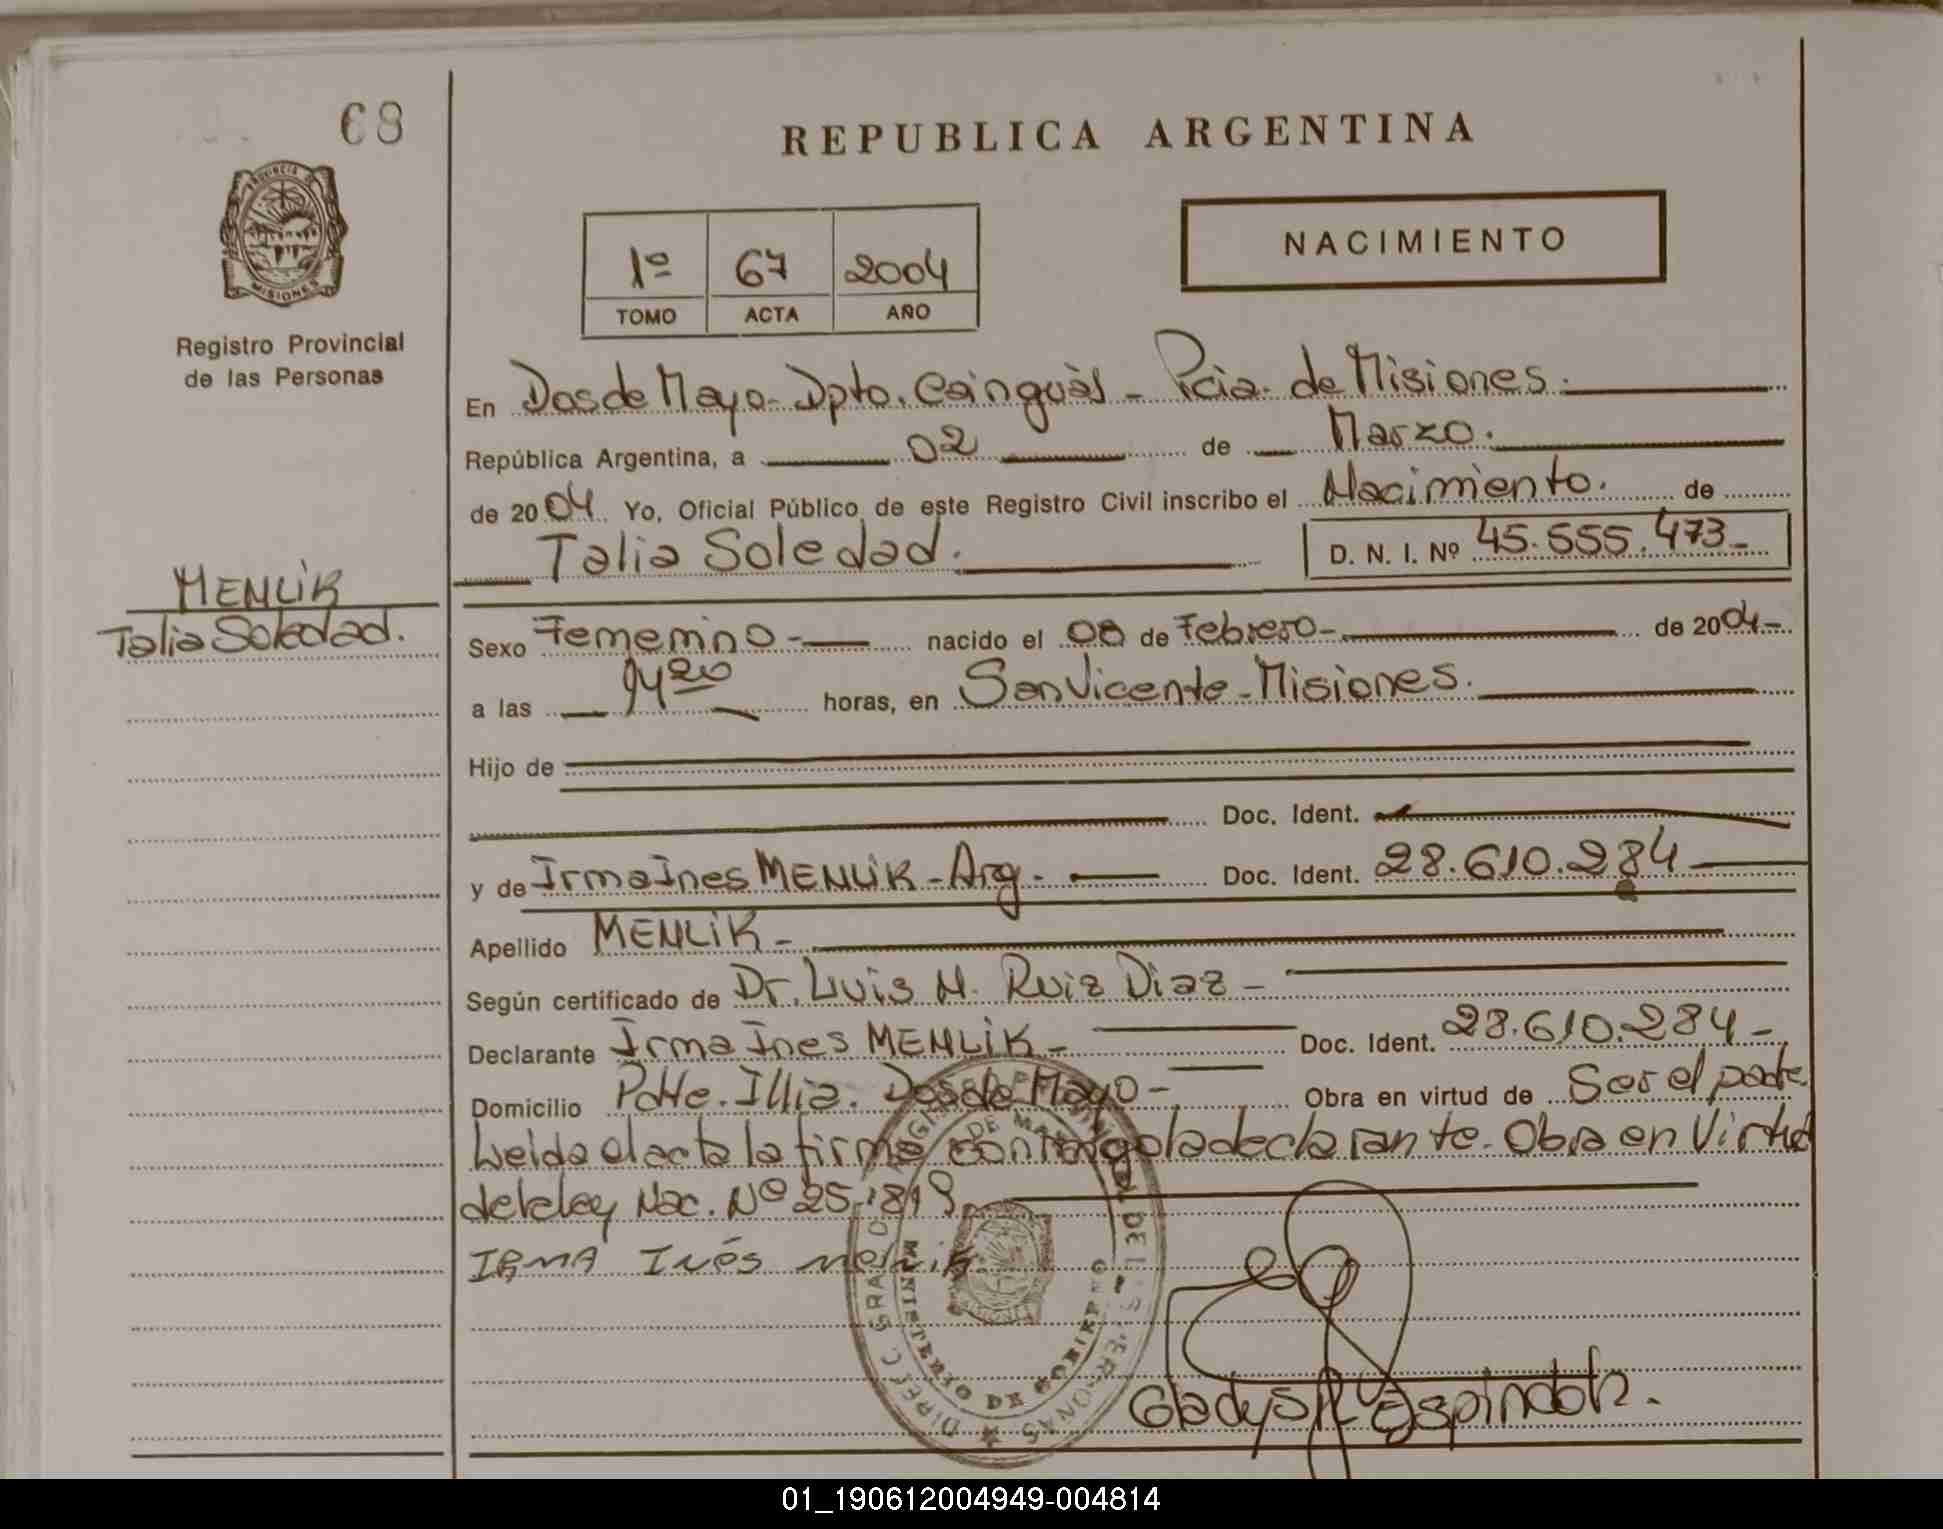 68
PROVINCIA DE
MISIONES
Registro Provincial
de las Personas
REPUBLICA ARGENTINA
1º 67 2004
TOMO ACTA AÑO
NACIMIENTO
En Dos de Mayo - Dpto. Cainguàs - Pcia. de Misiones.
República Argentina, a 02 de Marzo.
de 2004 Yo, Oficial Público de este Registro Civil inscribo el Nacimiento. de
Talia Soledad. D. N. I. Nº 45.555.473-
MENLiK
Talia Soledad.
Sexo Femenino - nacido el 08 de Febrero - de 2004-
a las horas, en San Vicente - Misiones.
Hijo de
Doc. Ident.
y de Irma Ines MENLiK - Arg. - Doc. Ident. 28.610.284
Apellido MENLiK -
Según certificado de Dr. Luis M. Ruiz Diaz -
Declarante Irma Ines MENLiK - Doc. Ident. 28.610.284 -
Domicilio Pdte. Illia. Dos de Mayo - Obra en virtud de Ser el
Leida el acta la firma conmigo la declarante. Obra en Virtud
de la ley Nac. Nº 25.819
IRMA Inés menlik
MINISTERIO DE GOBIERNO
Gladys R Espindola.
01_190612004949-004814